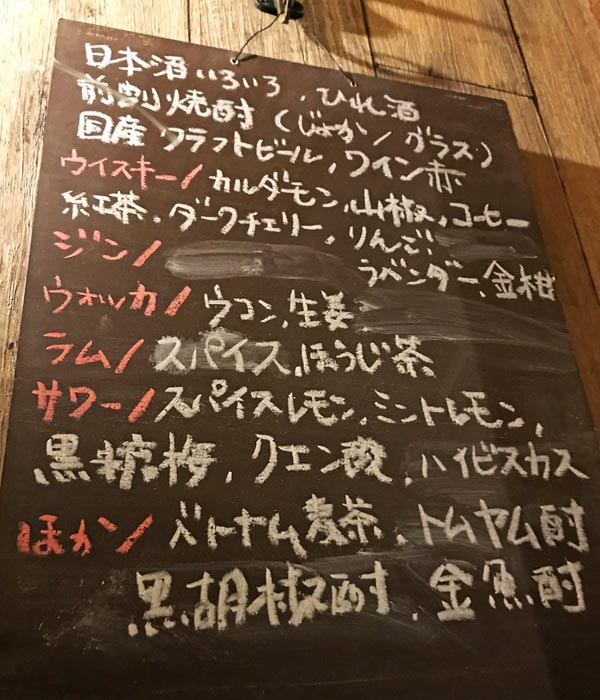 日本酒いろいろ、ひれ酒
前割焼酎(じょか/グラス)
国産クラフトビール、ワイン赤
ウイスキー/カルダモン、山椒、コーヒー
紅茶、ダークチェリー、りんご
ジン/ラベンダー、金柑
ウォッカ/ウコン、生姜
ラム/スパイス、ほうじ茶
サワー/スパイスレモン、ミントレモン、
黒糖梅、クエン酸、ハイビスカス
ほかン/ベトナム麦茶、トムヤム酎
黒胡椒酎、金魚酎